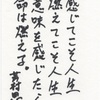 感じてこそ人生
燃えてこそ人生
意味を感じたら
命は燃える。